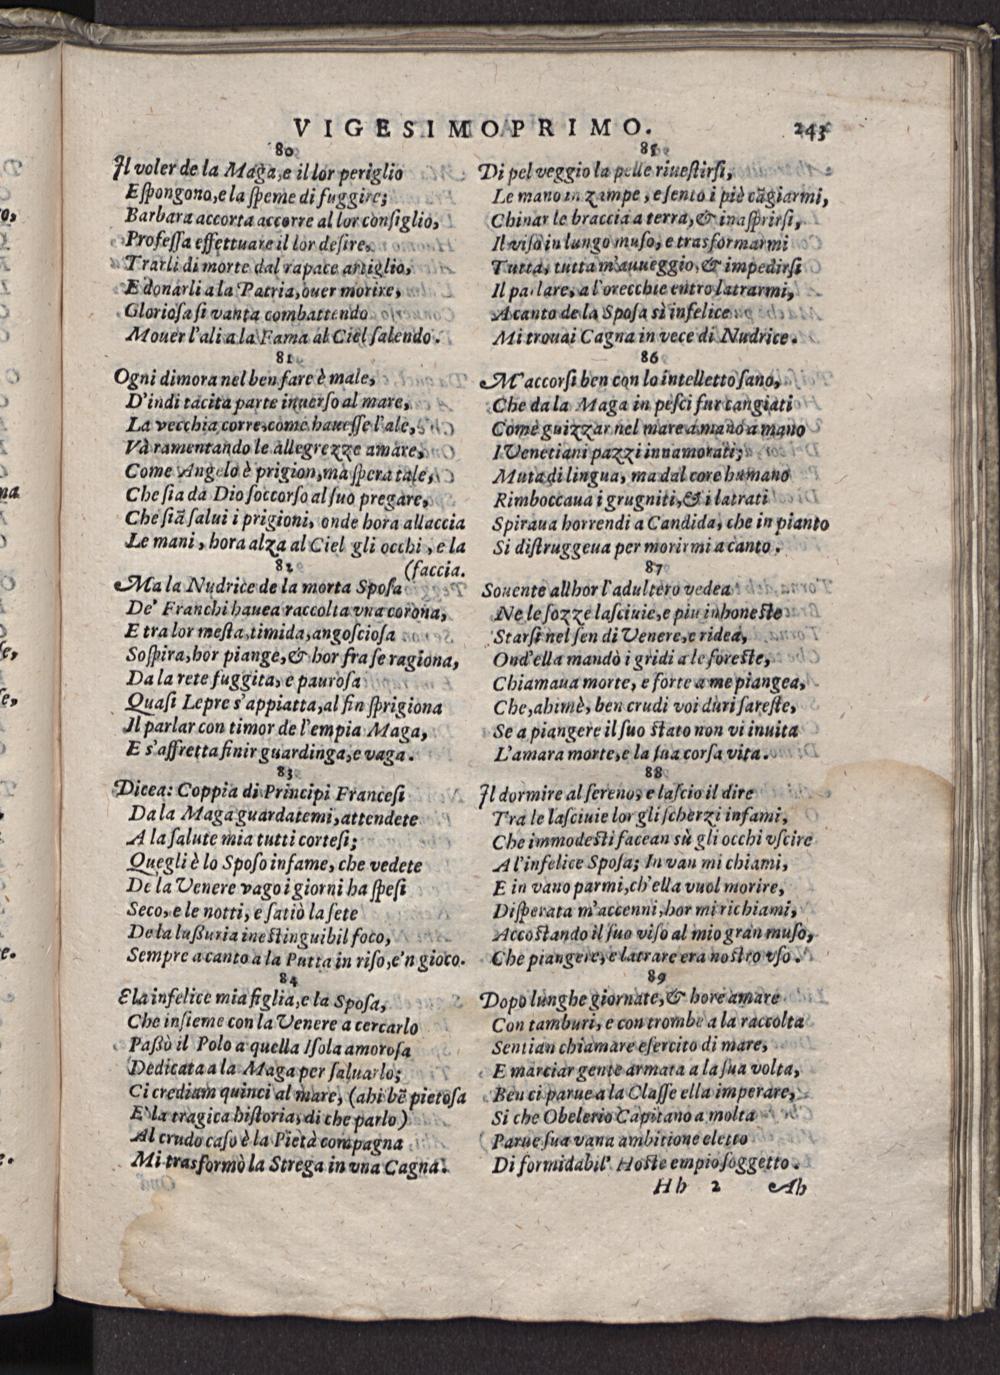 VIGESIMOPRIMO. 243
80
Il voler de la Maga, e il lor periglio
Eſpongono, e la ſpeme di fuggire;
Barbara accorta accorre al lor conſiglio,
Profeſſa effettuare il lor deſire,
Trarli di morte dal rapace artiglio,
E donarli a la Patria, ouer morire,
Glorioſa ſi vanta combattendo
Mouer l'ali a la Fama al Ciel ſalendo.
81
Ogni dimora nel ben fare è male,
D'indi tacita parte inuerſo al mare,
La vecchia corre, come haueſſe l'ale,
Và ramentando le allegrezze amare,
Come Angelo è prigion, ma ſpera tale,
Che ſia da Dio ſoccorſo al ſuo pregare,
Che ſiã ſalui i prigioni, onde hora allaccia
Le mani, hora alza al Ciel gli occhi, e la
(faccia.
82
Ma la Nudrice de la morta Spoſa
De' Franchi hauea raccolta vna corona,
E tra lor meſta, timida, angoſcioſa
Soſpira, hor piange, & hor fra ſe ragiona,
Da la rete fuggita, e pauroſa
Quaſi Lepre s'appiatta, al fin ſprigiona
Il parlar con timor de l'empia Maga,
E s'affretta finir guardinga, e vaga.
83
Dicea: Coppia di Principi Franceſi
Da la Maga guardatemi, attendete
A la ſalute mia tutti corteſi;
Quegli è lo Spoſo infame, che vedete
De la Venere vago i giorni ha ſpeſi
Seco, e le notti, e ſatiò la ſete
De la luſſuria ineſtinguibil foco,
Sempre a canto a la Putta in riſo, e'n gioco.
84
E la infelice mia figlia, e la Spoſa,
Che inſieme con la Venere a cercarlo
Paſſò il Polo a quella Iſola amoroſa
Dedicata a la Maga per ſaluarlo;
Ci crediam quinci al mare, (ahi bẽ pietoſa
E' la tragica hiſtoria, di che parlo)
Al crudo caſo è la Pietà compagna
Mi trasformò la Strega in vna Cagna.
85
Di pel veggio la pelle riueſtirſi,
Le mano in zampe, e ſento i piè cãgiarmi,
Chinar le braccia a terra, & inaſprirſi,
Il viſo in lungo muſo, e trasformarmi
Tutta, tutta m'auueggio, & impedirſi
Il parlare, a l'orecchie entro latrarmi,
A canto de la Spoſa sì infelice
Mi trouai Cagna in vece di Nudrice.
86
M'accorſi ben con lo intelletto ſano,
Che da la Maga in peſci fur cangiati
Come guizzar nel mare a mano a mano
I Venetiani pazzi innamorati;
Muta di lingua, ma dal core humano
Rimboccaua i grugniti, & i latrati
Spiraua horrendi a Candida, che in pianto
Si diſtruggeua per morirmi a canto.
87
Souente allhor l'adultero vedea
Ne le ſozze laſciuie, e piu inhoneſte
Starſi nel ſen di Venere, e ridea,
Ond'ella mandò i gridi a le foreſte,
Chiamaua morte, e forte a me piangea,
Che, ahimè, ben crudi voi duri ſareſte,
Se a piangere il ſuo ſtato non vi inuita
L'amara morte, e la ſua corſa vita.
88
Il dormire al ſereno, e laſcio il dire
Tra le laſciuie lor gli ſcherzi infami,
Che immodeſti facean sù gli occhi vſcire
A l'infelice Spoſa; In van mi chiami,
E in vano parmi, ch'ella vuol morire,
Diſperata m'accenni, hor mi richiami,
Accoſtando il ſuo viſo al mio gran muſo,
Che piangere, e latrare era noſtro vſo.
89
Dopo lunghe giornate, & hore amare
Con tamburi, e con trombe a la raccolta
Sentian chiamare eſercito di mare,
E marciar gente armata a la ſua volta,
Ben ci parue a la Claſſe ella imperare,
Si che Obelerio Capitano a molta
Parue ſua vana ambitione eletto
Di formidabil' Hoſte empio ſoggetto.
Hh 2 Ah